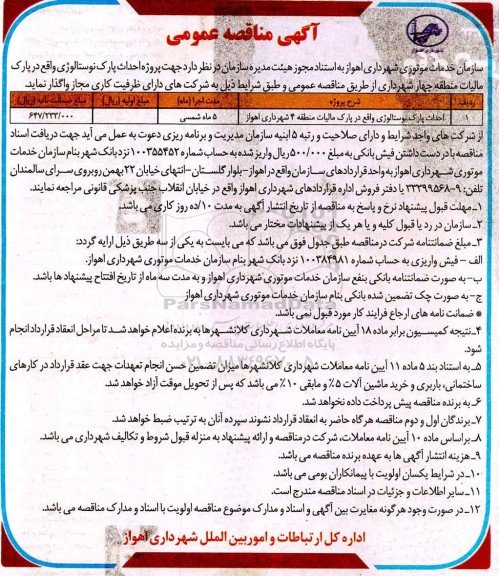 آگهی مناقصه عمومی
سازمان خدمات موتوری شهرداری اهواز به استناد مجوز هیئت مدیره سازمان در نظر دارد جهت پروژه احداث پارک نوستالوژی واقع در پارک
مالیات منطقه چهار شهرداری از طریق مناقصه عمومی و طبق شرایط ذیل به شرکت های دارای ظرفیت کاری مجاز واگذار نماید.
ردیف شرح پروژه مدت اجرا (ماه) مبلغ اولیه (ریال) مبلغ ضمانت نامه (ریال)
۱ احداث پارک نوستالوژی واقع در پارک مالیات منطقه ۴ شهرداری اهواز ۵ ماه شمسی ۶۴۷/۲۳۳/۰۰۰
از شرکت های واجد شرایط و دارای صلاحیت و رتبه ۵ ابنیه سازمان مدیریت و برنامه ریزی دعوت به عمل می آید جهت دریافت اسناد
مناقصه با در دست داشتن فیش بانکی به مبلغ ۵۰۰/۰۰۰ ریال واریز شده به حساب شماره ۱۰۰۳۵۵۴۵۲ نزد بانک شهر بنام سازمان خدمات
موتوری شهرداری اهواز به واحد قراردادهای سازمان واقع در اهواز-بلوار گلستان-انتهای خیابان ۲۲ بهمن روبروی سرای سالمندان
تلفن: ۹-۳۳۳۹۹۵۶۸ یا دفتر فروش اداره قراردادهای شهرداری اهواز واقع در خیابان انقلاب جنب پزشکی قانونی مراجعه نمایند.
۱-مهلت قبول پیشنهاد نرخ و پاسخ به مناقصه از تاریخ انتشار آگهی به مدت ۱۰/ده روز کاری می باشد.
۲-سازمان در رد یا قبول کلیه و یا هر یک از پیشنهادات مختار می باشد.
۳-مبلغ ضمانتنامه شرکت در مناقصه طبق جدول فوق می باشد که می بایست به یکی از سه طریق ذیل ارایه گردد:
الف - فیش واریزی به حساب شماره ۱۰۰۳۸۴۹۸۱ نزد بانک شهر بنام سازمان خدمات موتوری شهرداری اهواز.
ب- به صورت ضمانتنامه بانکی بنفع سازمان خدمات موتوری شهرداری اهواز و به مدت سه ماه از تاریخ افتتاح پیشنهاد ها باشد.
ج- به صورت چک تضمین شده بانکی بنام سازمان خدمات موتوری شهرداری اهواز
* ضمانت نامه های ارجاع فرایند کار مورد قبول نمی باشد.
۴-نتیجه کمیسیون برابر ماده ۱۸ آیین نامه معاملات شهرداری کلانشهرها به برنده اعلام خواهد شد تا مراحل انعقاد قرارداد انجام
شود.
۵-به استناد بند ۵ ماده ۱۱ آیین نامه معاملات شهرداری کلانشهرها میزان تضمین حسن انجام تعهدات جهت عقد قرارداد در کارهای
ساختمانی، باربری و خرید ماشین آلات ۵٪ و مابقی ۱۰٪ می باشد که پس از تحویل موقت آزاد خواهد شد.
۶-به برنده مناقصه پیش پرداخت داده نخواهد شد.
۷-برندگان اول و دوم مناقصه هرگاه حاضر به انعقاد قرارداد نشوند سپرده آنان به ترتیب ضبط خواهد شد.
۸-براساس ماده ۱۰ آیین نامه معاملات، شرکت در مناقصه و ارائه پیشنهاد به منزله قبول شروط و تکالیف شهرداری می باشد.
۹-هزینه انتشار آگهی ها به عهده برنده مناقصه می باشد.
۱۰-در شرایط یکسان اولویت با پیمانکاران بومی می باشد.
۱۱-سایر اطلاعات و جزئیات در اسناد مناقصه مندرج است.
۱۲-در صورت وجود هرگونه مغایرت بین آگهی و اسناد و مدارک موضوع مناقصه اولویت با اسناد و مدارک مناقصه می باشد.
اداره کل ارتباطات و امور بین الملل شهرداری اهواز